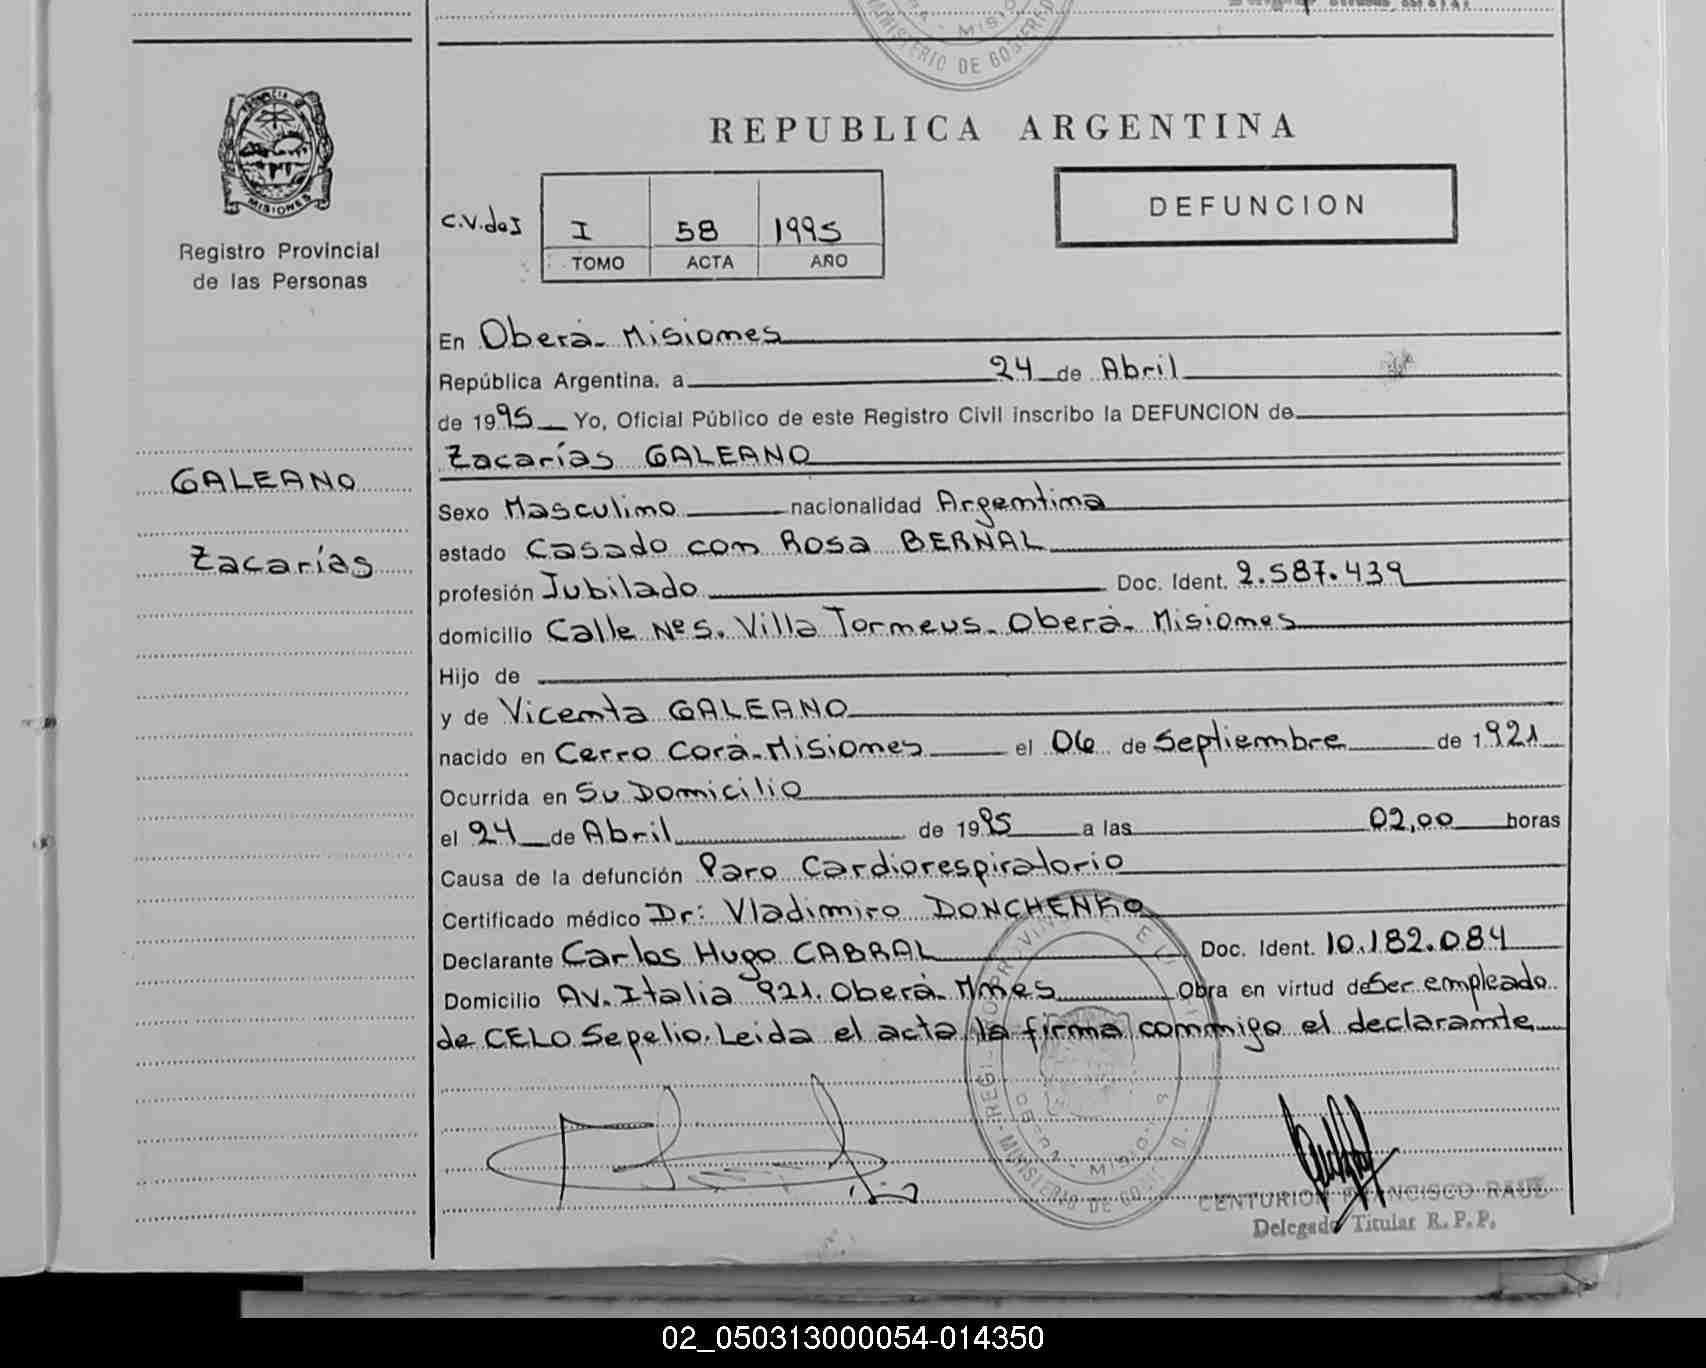 MINISTERIO DE GOBIERNO
REPUBLICA ARGENTINA
PROVINCIA D
MISIONES
Registro Provincial
de las Personas
DEFUNCION
C.V.dos
I 58 1995
TOMO ACTA AÑO
En Oberá- Misiones
República Argentina, a 24 de Abril
de 1995 Yo, Oficial Público de este Registro Civil inscribo la DEFUNCION de
Zacarías GALEANO
GALEANO
Zacarías
Sexo Masculino nacionalidad Argentina
estado Casado con Rosa BERNAL
profesión Jubilado Doc. Ident. 2.587.439
domicilio Calle Nº5. Villa Torneus- Oberá- Misiones
Hijo de
y de Vicenta GALEANO
nacido en Cerro Corá-Misiones el 06 de Septiembre de 1921
Ocurrida en Su Domicilio
el 24 de Abril de 1995 a las 02,00 horas
Causa de la defunción Paro Cardiorespiratorio
Certificado médico Dr: Vladimiro DONCHENKO
Declarante Carlos Hugo CABRAL Doc. Ident. 10.182.084
Domicilio Av. Italia 921. Oberá- Mnes Obra en virtud de Ser empleado
de CELO Sepelio. Leida el acta la firma conmigo el declarante
CENTURION FRANCISCO RAUL
Delegado Titular R.P.P.
02_050313000054-014350